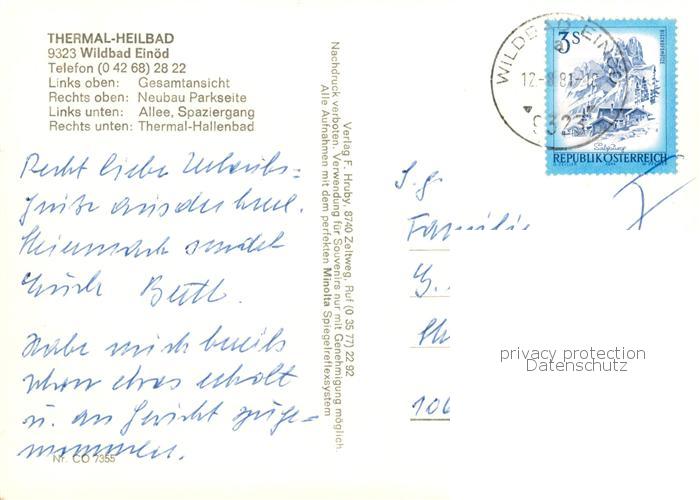 THERMAL-HEILBAD
9323 Wildbad Einöd
Telefon (0 42 68) 28 22
Links oben: Gesamtansicht
Rechts oben: Neubau Parkseite
Links unten: Allee, Spaziergang
Rechts unten: Thermal-Hallenbad
Recht liebe Urlaubs=
grüße aus der
Steiermark sendet
Euch
Habe mich bereits
schon etwas erholt
u. an Gewicht zuge=
nommen.
Nr. CO 7355
Verlag F. Hruby, 8740 Zeltweg, Ruf (0 35 77) 22 92
Nachdruck verboten. Verwendung für Souvenirs nur mit Genehmigung möglich.
Alle Aufnahmen mit dem perfekten Minolta Spiegelreflexsystem
WILDBAD EINÖD
9323
3 S
REPUBLIK ÖSTERREICH
S. g.
Familie
privacy protection
Datenschutz